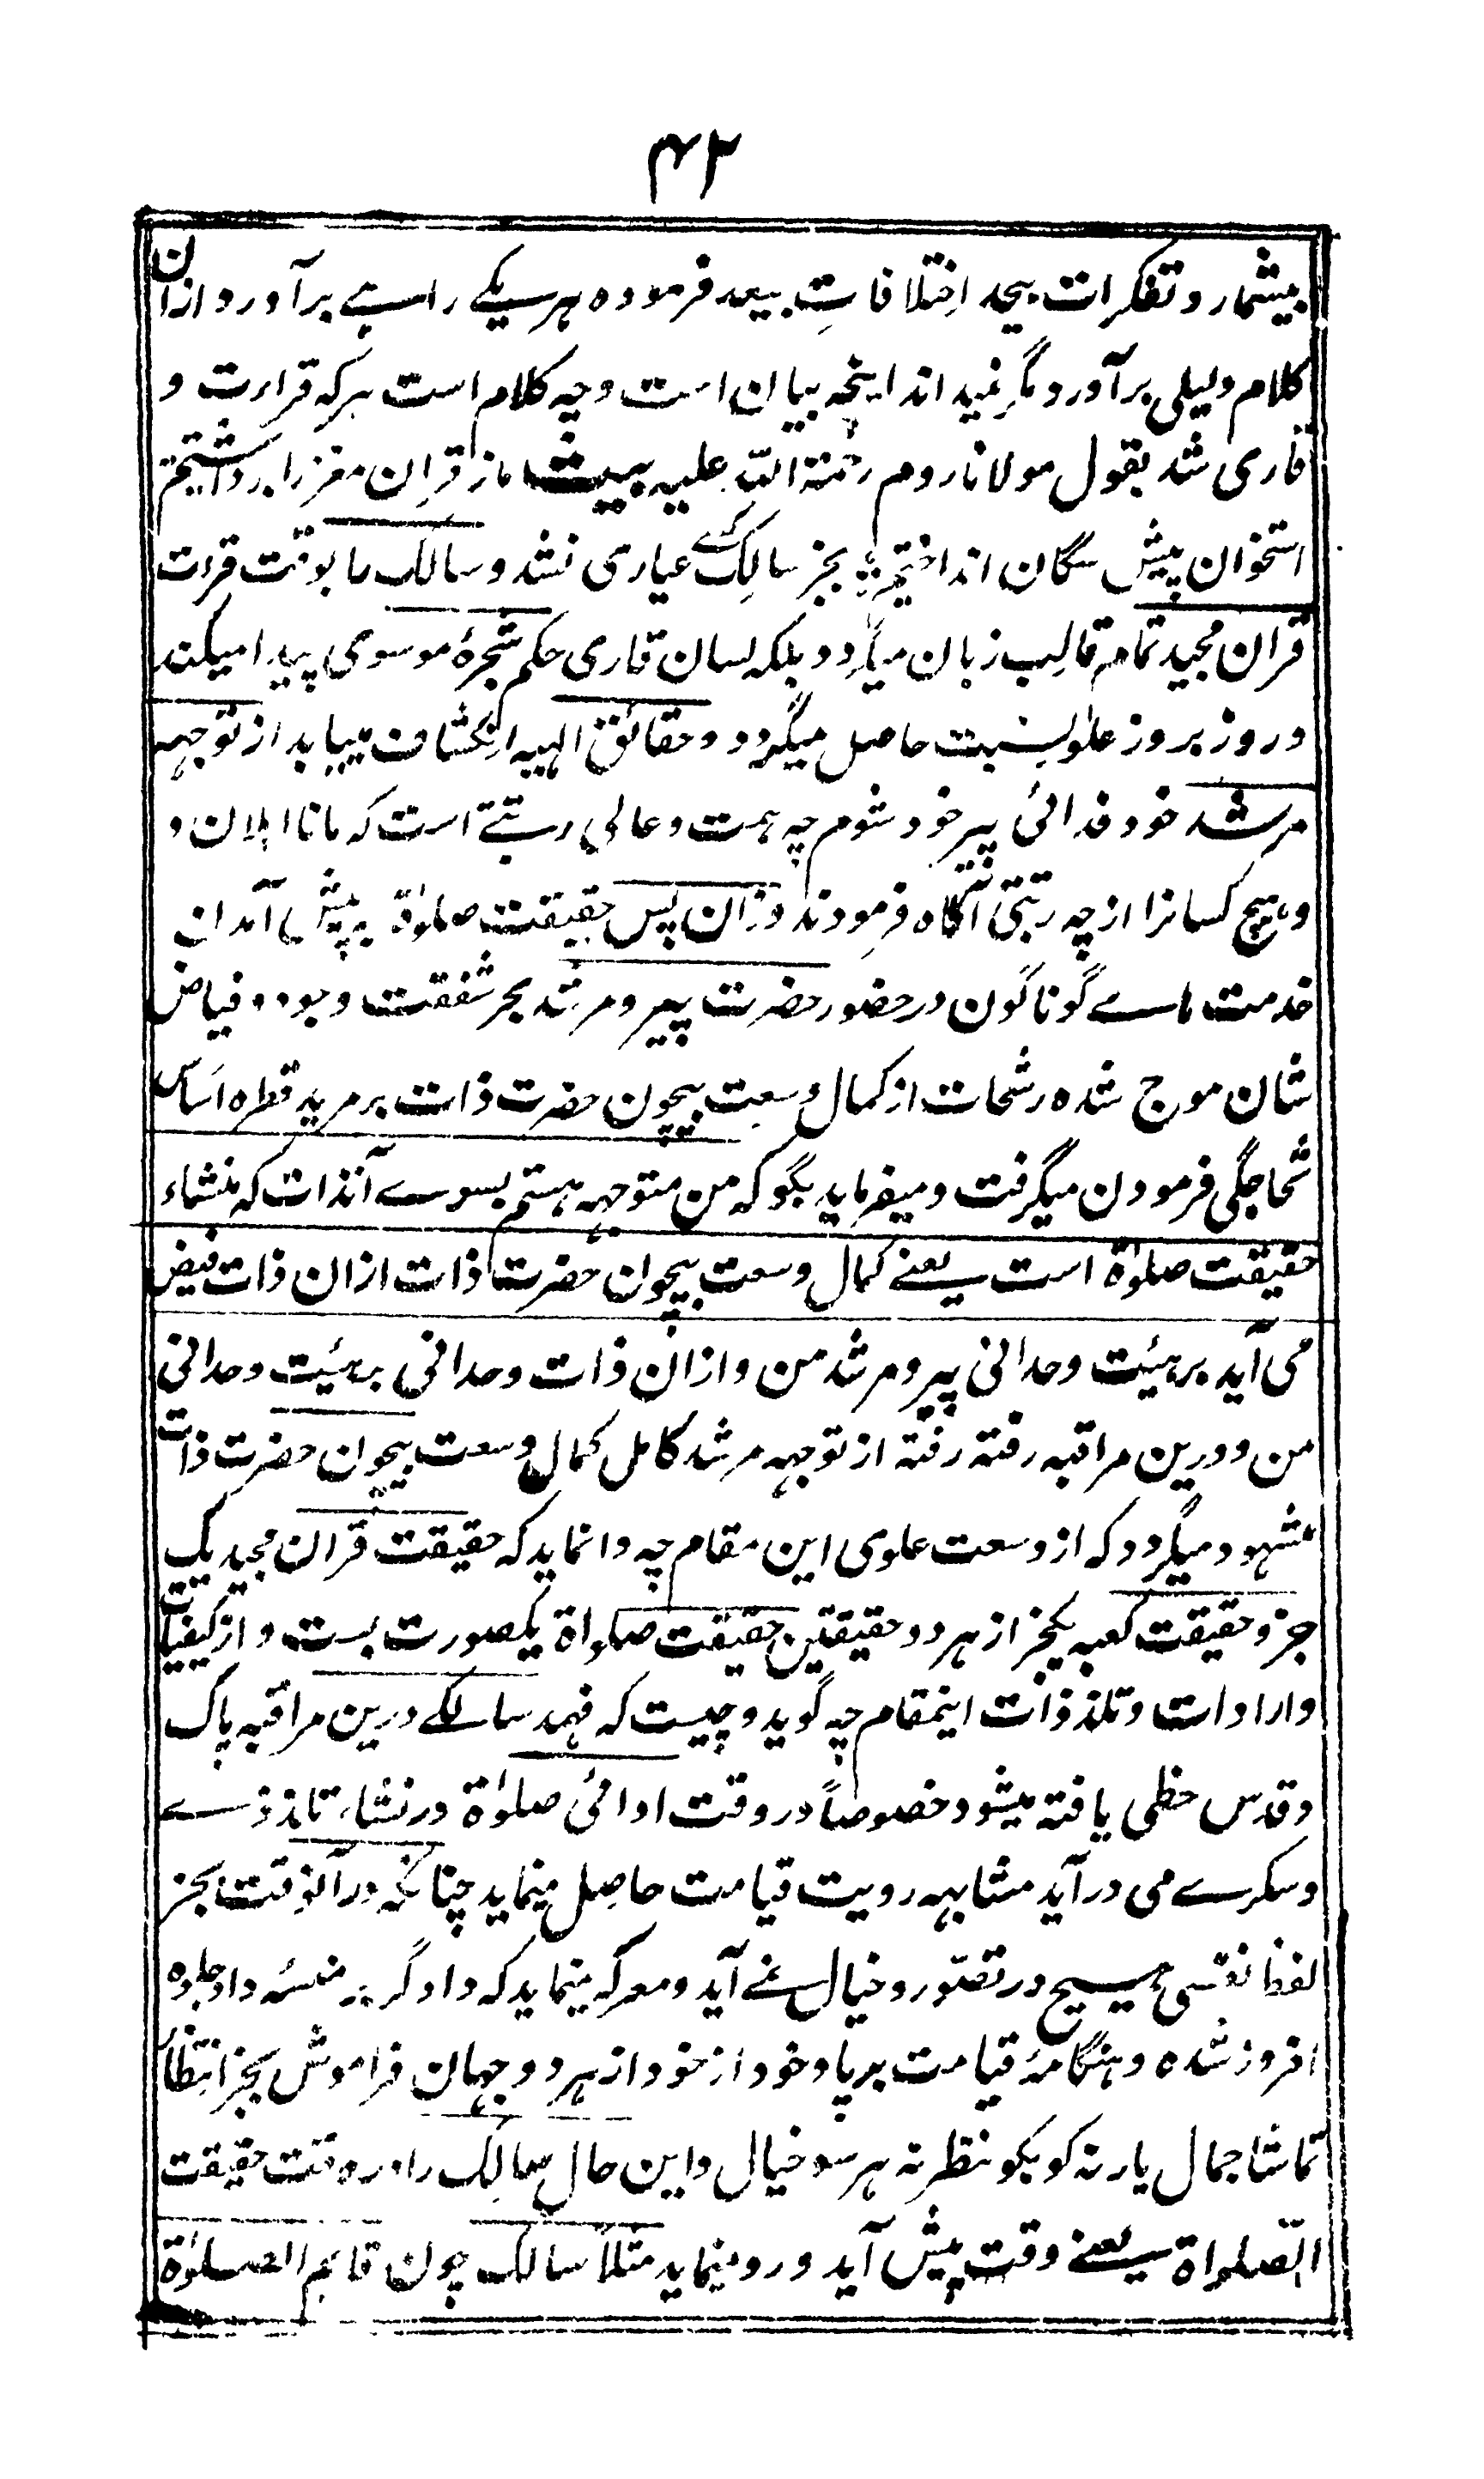 ۴۲
بیشمار و تفکرات بیحد اختلافاتِ بیعد فرموده هر یکے راہے برآورد و ازان
کلام دلیلی برآورد مگر نمیداند اینچہ بیان است و چہ کلام است ہر کہ قراءت و
قاری شد بقول مولانا روم رحمتہ اللہ علیہ بیت ما ز قران مغز را برداشتیم
استخوان پیش سگان انداختیم بجز سالِک کسے عیاری نشد و سالک را بوقت قرات
قران مجید تمام قالب زبان میگردد بلکہ لسان قاری حکم شجرۂ موسوی پیدا میکند
و روز بروز علو نسبت حاصل میگردد و حقائق الہیہ انکشاف مییابد از توجہہ
مرشد خود فدائی پیر خود شوم چہ ہمت و عالی رتبتے است کہ ما نا اہلان و
و ہیچ کسانرا از چہ رتبتی آگاہ فرمودند و زان پس حقیقت صلوٰۃ بہ پیش آمدان
خدمت ہاے گوناگون در حضور حضرت پیر و مرشد بحر شفقت و جود و فیاض
شان موج شدہ رشحات از کمال وسعت بیچون حضرت ذات بر مرید قطرہ اساس
فرمودن میگرفت و میفرماید بگو کہ من متوجہہ ہستم بسوے آنذات کہ منشاء
حقیقت صلوٰۃ است یعنے کمال وسعت بیچوان حضرت ذات ازان ذات فیض
می آید بر ہئیت وحدانی پیر و مرشد من و ازان ذات وحدانی بر ہئیت وحدانی
من و درین مراقبہ رفتہ رفتہ از توجہہ مرشد کامل کمال وسعت بیچوان حضرت ذات
مشہود میگردد کہ از وسعت علوی این مقام چہ وا نماید کہ حقیقت قران مجید یک
جز و حقیقت کعبہ یکجز از ہر دو حقیقتین حقیقت صلواۃ یکصورت بست و از کیفیات
و ارادات و تلذذات اینمقام چہ گوید و چیست کہ فہمد سالکے درین مراقبہ پاک
و قدس حظی یافتہ میشود خصوصاً در وقت ادائی صلوٰۃ در نشاء تلذذے
و سکرے می درآید مشابہہ رویت قیامت حاصل مینماید چنانکہ در آنوقت بجز
لفظ نفسی ہیچ در تصوّر و خیال نمے آید و معرکہ مینماید کہ دادگر بر مسند داد جلوہ
افروز شدہ و ہنگامۂ قیامت برپا و خود از خود از ہر دو جہان فراموش بجز انتظار
تماشا جمال یار نہ کو بکو نظر نہ ہر سو خیال و این حال سالک را در وقت حقیقت
الصلواۃ یعنے وقت پیش آید و رو مینماید مثلاً سالک چون قایم الصلوٰۃ